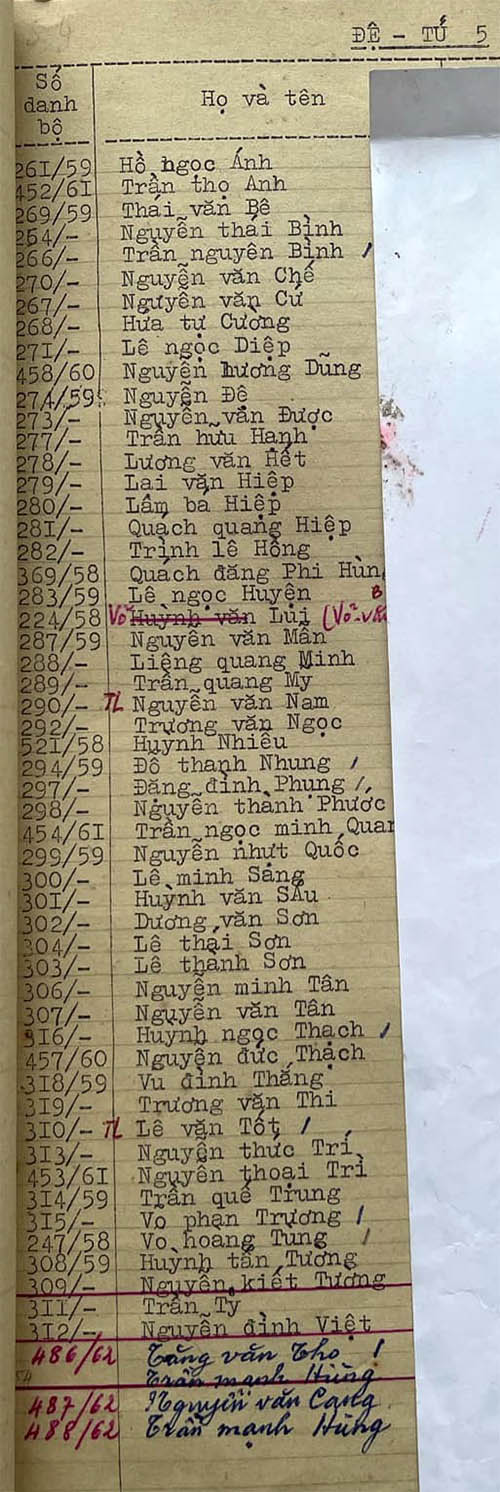 ĐỆ - TỨ 5
Số danh bộ Họ và tên
261/59 Hồ ngọc Ánh
452/61 Trần thọ Anh
269/59 Thái văn Bê
264/- Nguyễn thái Bình
266/- Trần nguyên Bình /
270/- Nguyễn văn Chế
267/- Nguyễn văn Cứ
268/- Hứa tự Cường
271/- Lê ngọc Diệp
458/60 Nguyễn hương Dũng
274/59 Nguyễn Đệ
273/- Nguyễn văn Được
277/- Trần hưu Hạnh
278/- Lương văn Hết
279/- Lai văn Hiệp
280/- Lâm bá Hiệp
281/- Quách quang Hiệp
282/- Trịnh lê Hồng
369/58 Quách đăng Phi Hùng
283/59 Lê ngọc Huyện
224/58 Võ Huỳnh văn Lùi (Võ-văn
287/59 Nguyễn văn Mẫn
288/- Liêng quang Minh
289/- Trần quang My
290/- TL Nguyễn văn Nam
292/- Trương văn Ngọc
521/58 Huỳnh Nhiêu
294/59 Đỗ thanh Nhung /
297/- Đặng đình Phụng /
298/- Nguyễn thành Phước
454/61 Trần ngọc minh Quan
299/59 Nguyễn nhựt Quốc
300/- Lê minh Sáng
301/- Huỳnh văn Sáu
302/- Dương văn Sơn
304/- Lê thái Sơn
303/- Lê thành Sơn
306/- Nguyễn minh Tân
307/- Nguyễn văn Tân
316/- Huỳnh ngọc Thạch /
457/60 Nguyễn đức Thạch
318/59 Vu đình Thắng
319/- Trương văn Thi
310/- TL Lê văn Tốt /
313/- Nguyễn thức Trí
453/61 Nguyễn thoại Trì
314/59 Trần quế Trung
315/- Vo phan Trương /
247/58 Vo hoang Tung /
308/59 Huỳnh tấn Tường
309/- Nguyễn kiết Tường
311/- Trần Ty
312/- Nguyễn đình Việt
486/62 Tăng văn Thọ /
Trần mạnh Hùng
487/62 Nguyễn văn Cang
488/62 Trần mạnh Hùng